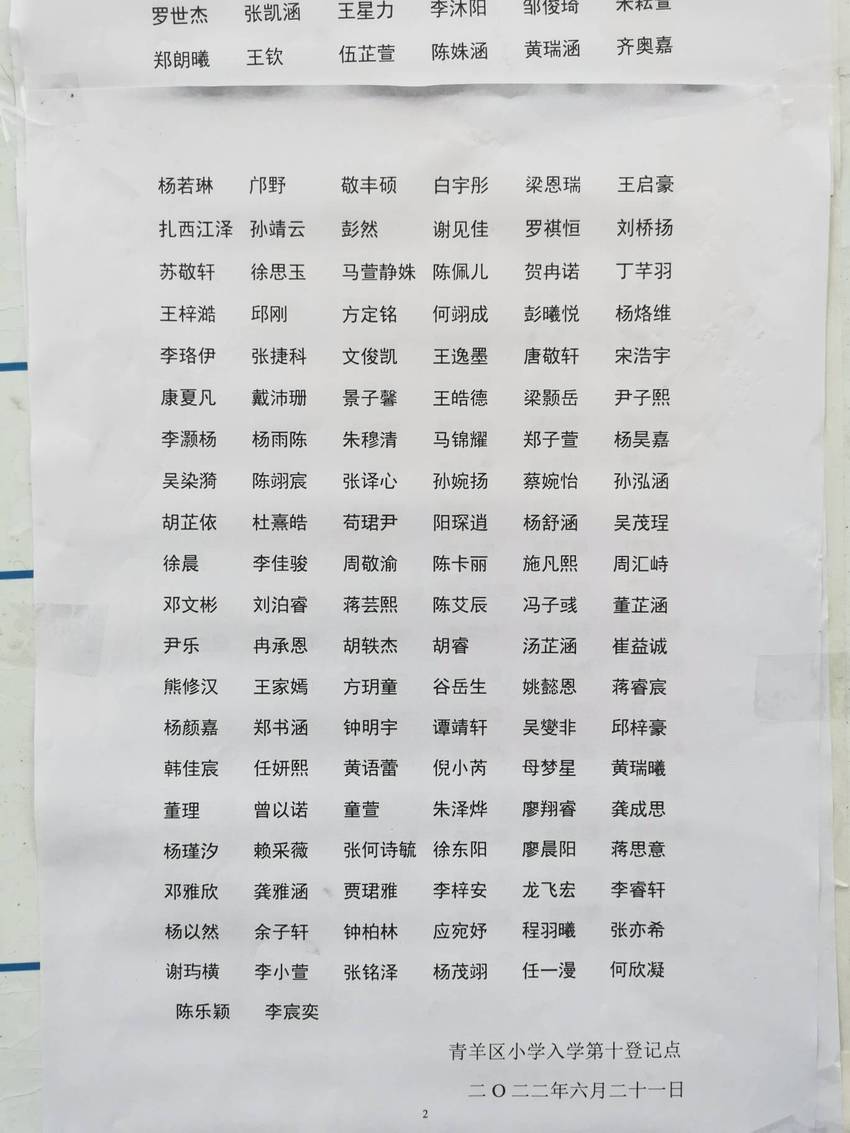 罗世杰 张凯涵 王星力 李沐阳 邹俊琦
郑朗曦 王钦 伍芷萱 陈姝涵 黄瑞涵 齐奥嘉
杨若琳 邝野 敬丰硕 白宇彤 梁恩瑞 王启豪
扎西江泽 孙靖云 彭然 谢见佳 罗祺恒 刘桥扬
苏敬轩 徐思玉 马萱静姝 陈佩儿 贺冉诺 丁芊羽
王梓澔 邱刚 方定铭 何翊成 彭曦悦 杨烙维
李珞伊 张捷科 文俊凯 王逸墨 唐敬轩 宋浩宇
康夏凡 戴沛珊 景子馨 王皓德 梁颢岳 尹子熙
李灏杨 杨雨陈 朱穆清 马锦耀 郑子萱 杨昊嘉
吴染漪 陈翊宸 张译心 孙婉扬 蔡婉怡 孙泓涵
胡芷依 杜熹皓 苟珺尹 阳琛逍 杨舒涵 吴茂珵
徐晨 李佳骏 周敬渝 陈卡丽 施凡熙 周汇峙
邓文彬 刘泊睿 蒋芸熙 陈艾辰 冯子彧 董芷涵
尹乐 冉承恩 胡轶杰 胡睿 汤芷涵 崔益诚
熊修汉 王家嫣 方玥童 谷岳生 姚懿恩 蒋睿宸
杨颜嘉 郑书涵 钟明宇 谭靖轩 吴燮非 邱梓豪
韩佳宸 任妍熙 黄语蕾 倪小芮 母梦星 黄瑞曦
董理 曾以诺 童萱 朱泽烨 廖翔睿 龚成思
杨瑾汐 赖采薇 张何诗毓 徐东阳 廖晨阳 蒋思意
邓雅欣 龚雅涵 贾珺雅 李梓安 龙飞宏 李睿轩
杨以然 余子轩 钟柏林 应宛妤 程羽曦 张亦希
谢玙横 李小萱 张铭泽 杨茂翊 任一漫 何欣凝
陈乐颖 李宸奕
青羊区小学入学第十登记点
二O二二年六月二十一日
2